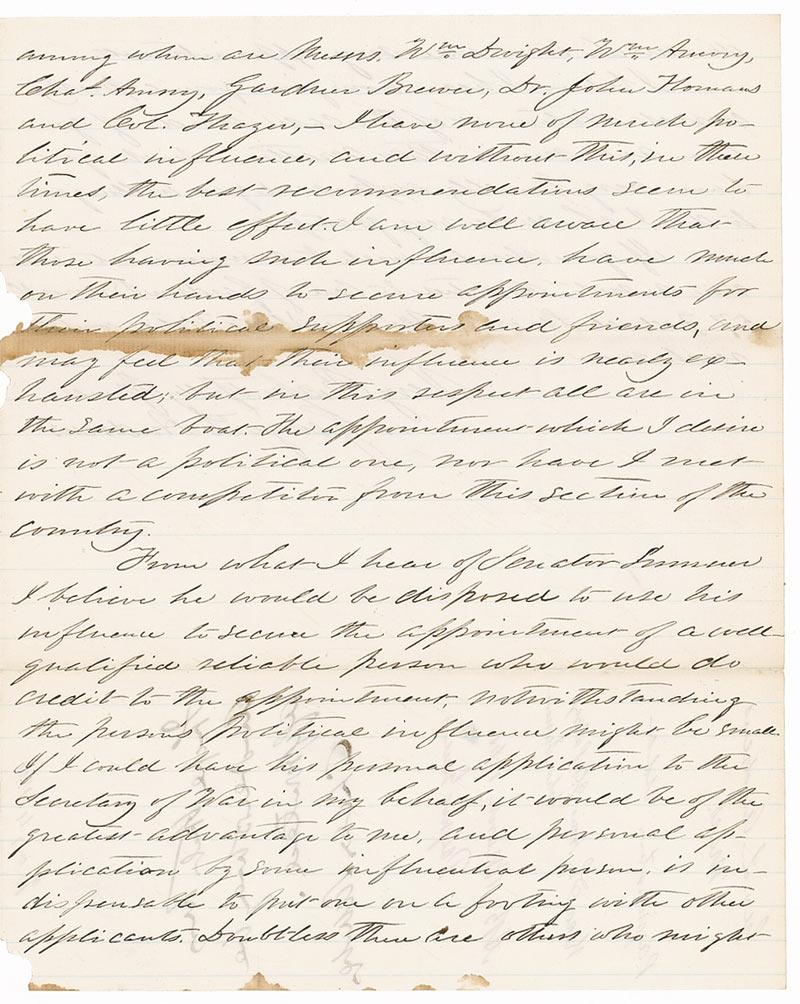 among whom are Messrs. Wm. Dwight, Wm. Amory,
Chas. Amory, Gardner Brewer, Dr. John Homans
and Col. Thayer, – I have none of much po-
litical influence, and without this, in these
times, the best recommendations seem to
have little effect. I am well aware that
those having such influence, have much
on their hands to secure appointments for
their political supporters and friends, and
may feel that their influence is nearly ex-
hausted; but in this respect all are in
the same boat. The appointment which I desire
is not a political one, nor have I met
with a competitor from this section of the
country.
From what I hear of Senator Sumner
I believe he would be disposed to use his
influence to secure the appointment of a well-
qualified reliable person who would do
credit to the appointment, notwithstanding
the persons political influence might be small.
If I could have his personal application to the
Secretary of War in my behalf, it would be of the
greatest advantage to me, and personal ap-
plication by some influential person, is in-
dispensable to put one on a footing with other
applicants. Doubtless there are others who might